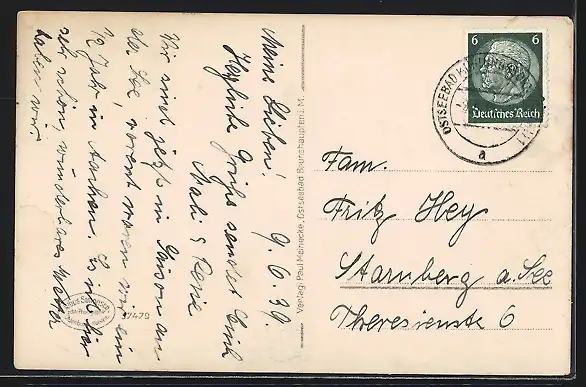 Meine Lieben! 9.6.39.
Herzliche Grüße sendet Euch
Mali &
Wir sind jetzt in Saison an
der See, vorerst waren wir ein
½ Jahr in Aachen. Es ist hier
sehr schön, wunderbares Wetter
haben wir
37479
Verlag: Paul Meinecke, Ostseebad Brunshaupten i. M.
6 6
Deutsches Reich
OSTSEEBAD
a
Fam.
Fritz Hey
Starnberg a. See
Theresienstr 6